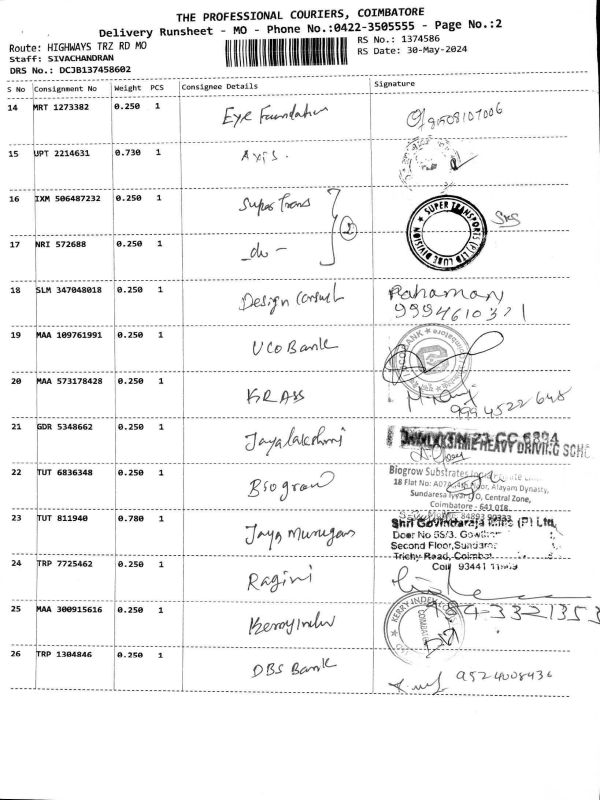 THE PROFESSIONAL COURIERS, COIMBATORE
Delivery Runsheet - MO - Phone No.:0422-3505555 - Page No.:2
Route: HIGHWAYS TRZ RD MO
RS No.: 1374586
Staff: SIVACHANDRAN
RS Date: 30-May-2024
DRS No.: DCJB137458602
S No Consignment No Weight PCS Consignee Details Signature
14 MRT 1273382 0.250 1 Eye Foundation
15 UPT 2214631 0.730 1 Axis.
16 IXM 506487232 0.250 1 Super Trans
2
SUPER TRANSPORTS (P) LTD LUBE DIVISION
17 NRI 572688 0.250 1 -do-
18 SLM 347048018 0.250 1 Design Consult Rahaman
9994610371
19 MAA 109761991 0.250 1 UCO Bank
20 MAA 573178428 0.250 1 KR Ass
9994522648
21 GDR 5348662 0.250 1 Jayalakshmi HEAVY DRIVING SCHO
22 TUT 6836348 0.250 1 Biogrow Biogrow Substrates
18 Flat No: Floor, Alayam Dynasty,
Sundaresa Iyyar Central Zone,
Coimbatore - 641 018.
23 TUT 811940 0.780 1 Jaya Murugan Shri Govindaraja Mills (P) Ltd,
Door No 55/3.
Second Floor, Sundarar
Trichy Road, Coimbat
24 TRP 7725462 0.250 1 Ragini
25 MAA 300915616 0.250 1 Kerry Indev KERRY INDEV
9843321353
26 TRP 1304846 0.250 1 DBS Bank 9524008436